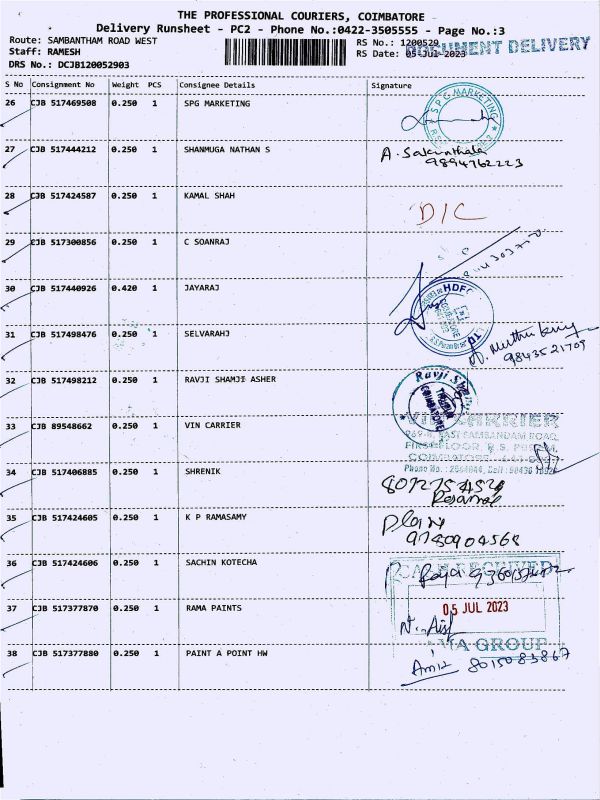 THE PROFESSIONAL COURIERS, COIMBATORE
Delivery Runsheet - PC2 - Phone No.:0422-3505555 - Page No.:3
Route: SAMBANTHAM ROAD WEST RS No.: 1200529
Staff: RAMESH RS Date: 05-Jul-2023 DOCUMENT DELIVERY
DRS No.: DCJB120052903
S No Consignment No Weight PCS Consignee Details Signature
26 CJB 517469508 0.250 1 SPG MARKETING SPG MARKETING
27 CJB 517444212 0.250 1 SHANMUGA NATHAN S A. Sakunthala
9894762223
28 CJB 517424587 0.250 1 KAMAL SHAH D/C
29 CJB 517300856 0.250 1 C SOANRAJ
30 CJB 517440926 0.420 1 JAYARAJ HDFC
31 CJB 517498476 0.250 1 SELVARAHJ
9843521709
32 CJB 517498212 0.250 1 RAVJI SHAMJI ASHER Ravji
COIMBATORE
33 CJB 89548662 0.250 1 VIN CARRIER VIN CARRIER
EAST SAMBANDAM ROAD,
34 CJB 517406885 0.250 1 SHRENIK
35 CJB 517424605 0.250 1 K P RAMASAMY
9780904568
36 CJB 517424606 0.250 1 SACHIN KOTECHA
37 CJB 517377870 0.250 1 RAMA PAINTS 05 JUL 2023
GROUP
38 CJB 517377880 0.250 1 PAINT A POINT HW 8015083867